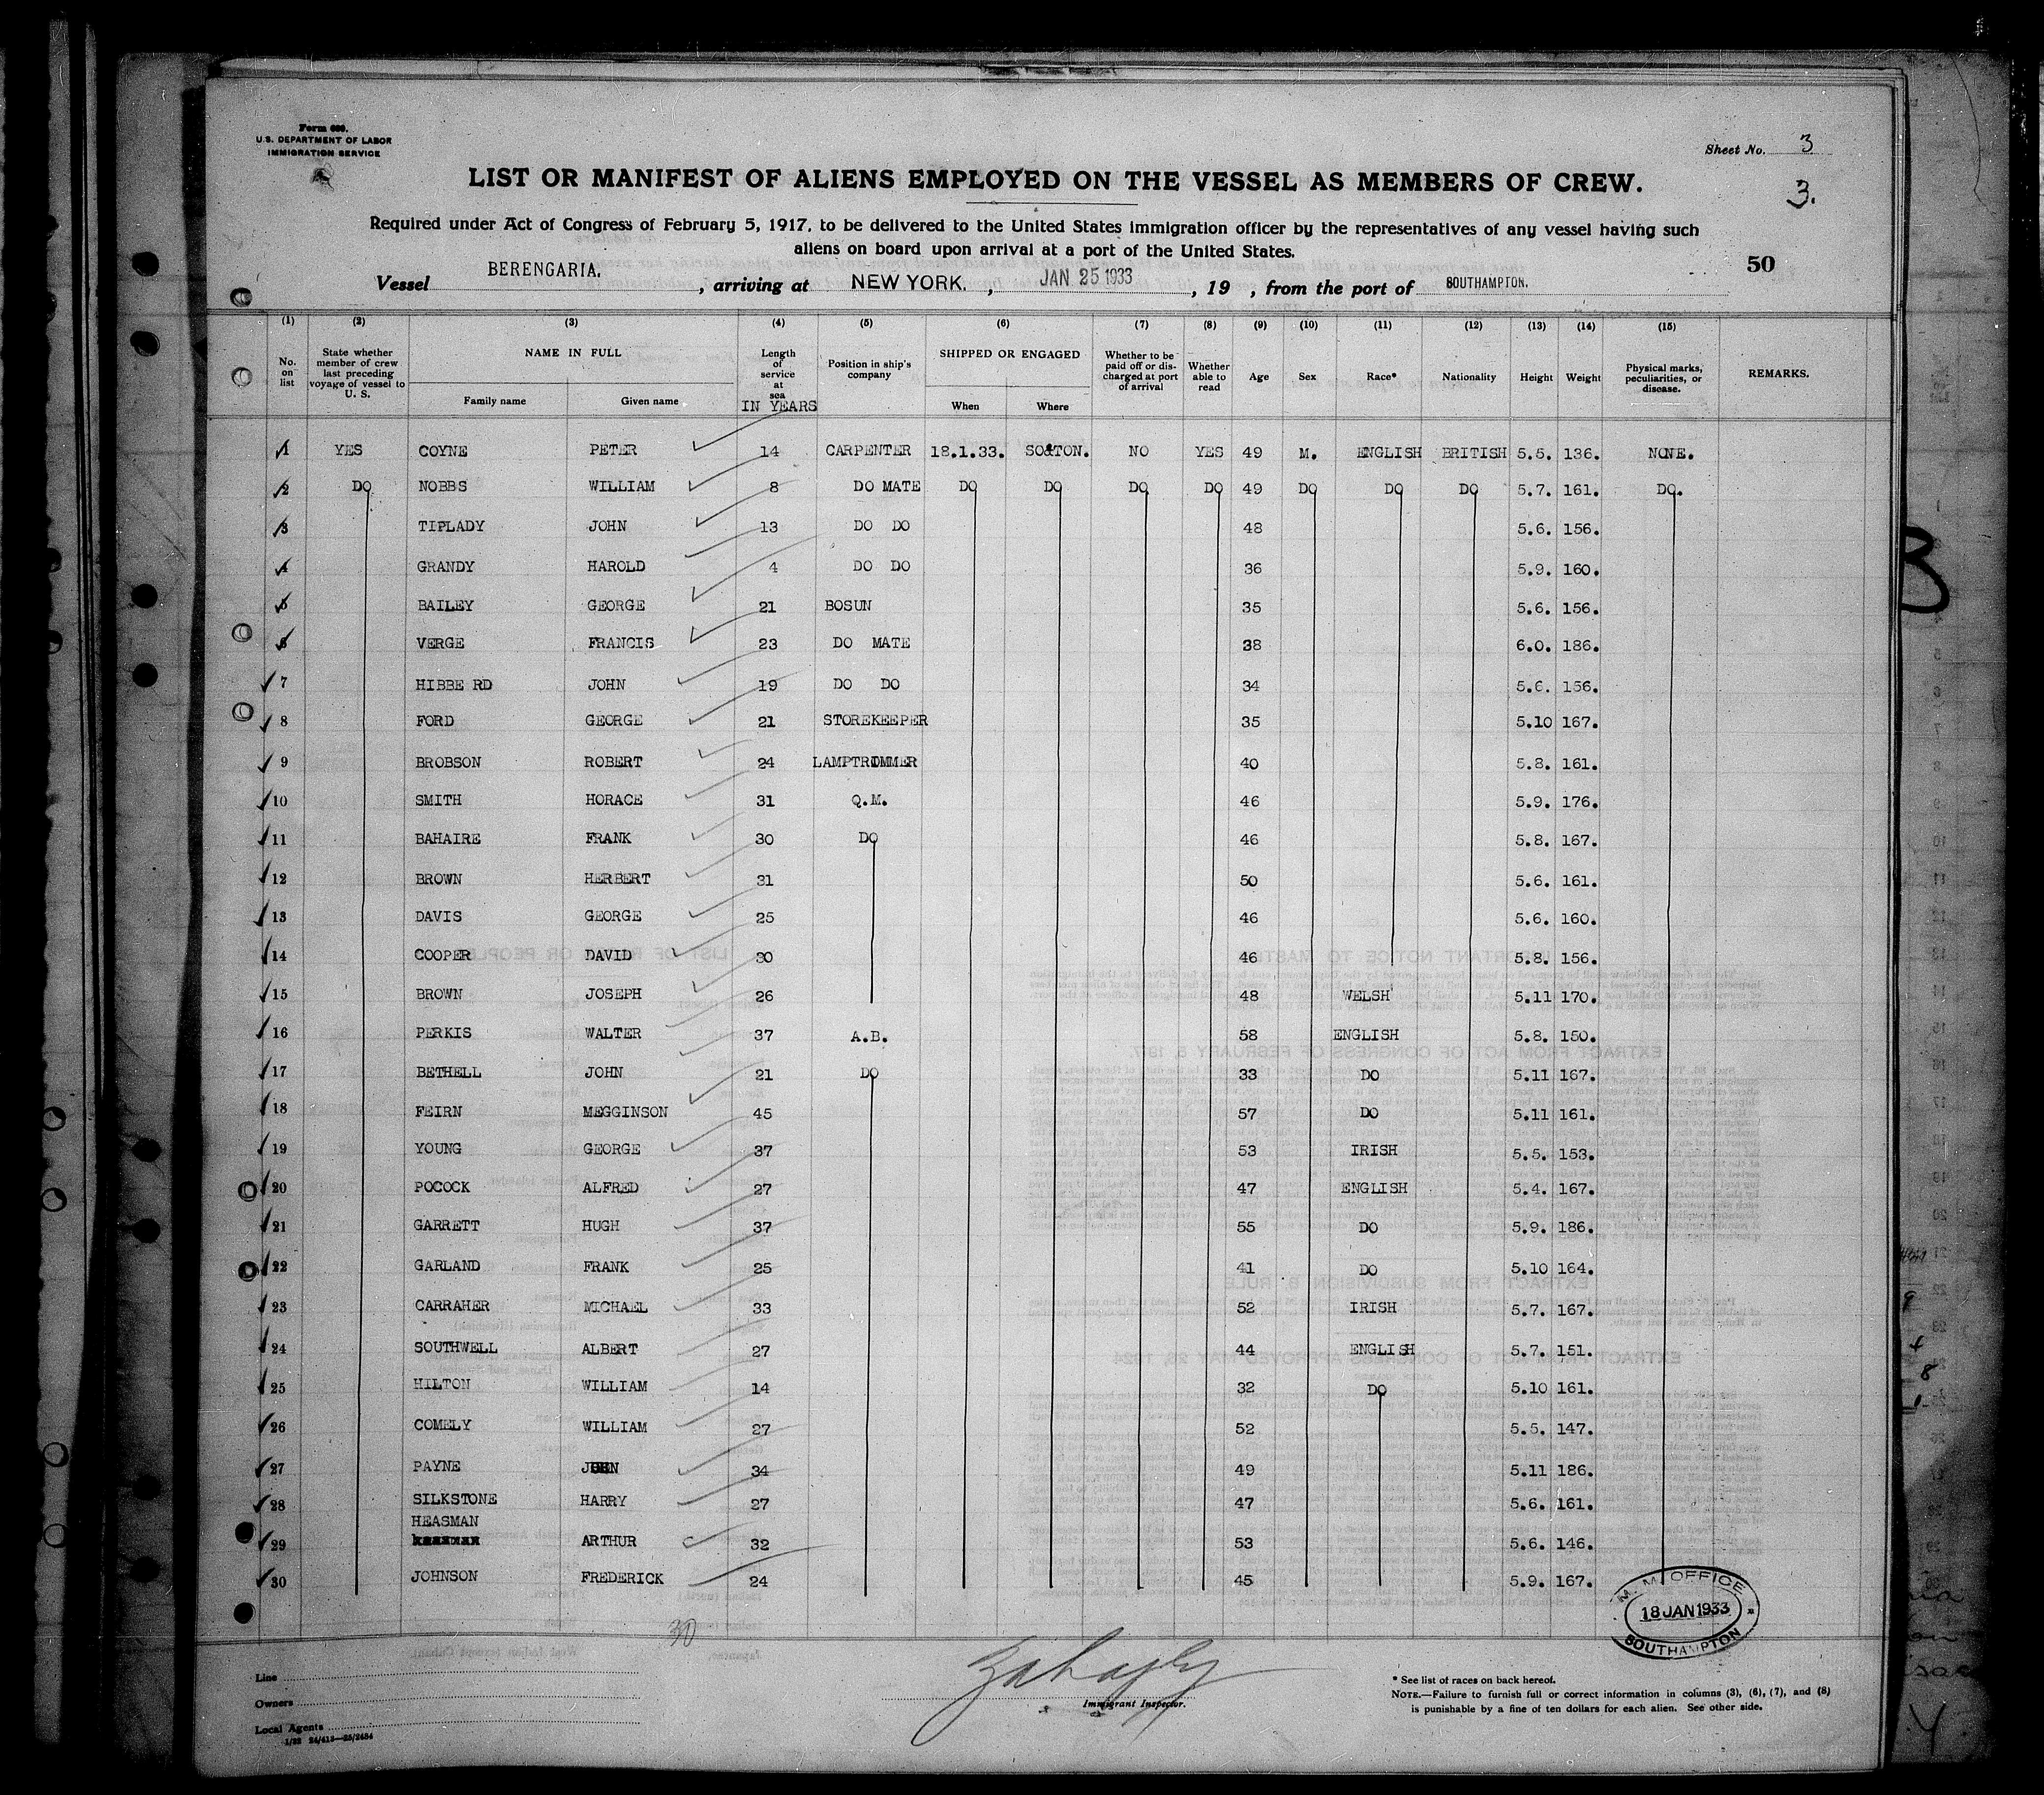 Form 689.
U.S. DEPARTMENT OF LABOR
IMMIGRATION SERVICE
Sheet No. 3
LIST OR MANIFEST OF ALIENS EMPLOYED ON THE VESSEL AS MEMBERS OF CREW.
3.
Required under Act of Congress of February 5, 1917, to be delivered to the United States immigration officer by the representatives of any vessel having such
aliens on board upon arrival at a port of the United States.
50
Vessel BERENGARIA. , arriving at NEW YORK. , JAN 25 1933 , 19 , from the port of SOUTHAMPTON.
(1) (2) (3) (4) (5) (6) (7) (8) (9) (10) (11) (12) (13) (14) (15)
No. on list State whether member of crew last preceding voyage of vessel to U. S. NAME IN FULL Family name Given name Length of service at sea IN YEARS Position in ship's company SHIPPED OR ENGAGED When Where Whether to be paid off or discharged at port of arrival Whether able to read Age Sex Race* Nationality Height Weight Physical marks, peculiarities, or disease. REMARKS.
1 YES COYNE PETER 14 CARPENTER 18.1.33. SO&TON. NO YES 49 M. ENGLISH BRITISH 5.5. 136. NONE.
2 DO NOBBS WILLIAM 8 DO MATE DO DO DO DO 49 DO DO DO 5.7. 161. DO.
3 TIPLADY JOHN 13 DO DO 48 5.6. 156.
4 GRANDY HAROLD 4 DO DO 36 5.9. 160.
5 BAILEY GEORGE 21 BOSUN 35 5.6. 156.
6 VERGE FRANCIS 23 DO MATE 38 6.0. 186.
7 HIBBE RD JOHN 19 DO DO 34 5.6. 156.
8 FORD GEORGE 21 STOREKEEPER 35 5.10 167.
9 BROBSON ROBERT 24 LAMPTRIMMER 40 5.8. 161.
10 SMITH HORACE 31 Q.M. 46 5.9. 176.
11 BAHAIRE FRANK 30 DO 46 5.8. 167.
12 BROWN HERBERT 31 50 5.6. 161.
13 DAVIS GEORGE 25 46 5.6. 160.
14 COOPER DAVID 30 46 5.8. 156.
15 BROWN JOSEPH 26 48 WELSH 5.11 170.
16 PERKIS WALTER 37 A.B. 58 ENGLISH 5.8. 150.
17 BETHELL JOHN 21 DO 33 DO 5.11 167.
18 FEIRN MEGGINSON 45 57 DO 5.11 161.
19 YOUNG GEORGE 37 53 IRISH 5.5. 153.
20 POCOCK ALFRED 27 47 ENGLISH 5.4. 167.
21 GARRETT HUGH 37 55 DO 5.9. 186.
22 GARLAND FRANK 25 41 DO 5.10 164.
23 CARRAHER MICHAEL 33 52 IRISH 5.7. 167.
24 SOUTHWELL ALBERT 27 44 ENGLISH 5.7. 151.
25 HILTON WILLIAM 14 32 DO 5.10 161.
26 COMELY WILLIAM 27 52 5.5. 147.
27 PAYNE JOHN 34 49 5.11 186.
28 SILKSTONE HARRY 27 47 5.6. 161.
HEASMAN
29 ARTHUR 32 53 5.6. 146.
30 JOHNSON FREDERICK 24 45 5.9. 167.
M. M. OFFICE
18 JAN 1933
SOUTHAMPTON
30
Line
Owners
Local Agents
1/32 24/413—25/2454
Immigrant Inspector.
* See list of races on back hereof.
NOTE.—Failure to furnish full or correct information in columns (3), (6), (7), and (8)
is punishable by a fine of ten dollars for each alien. See other side.